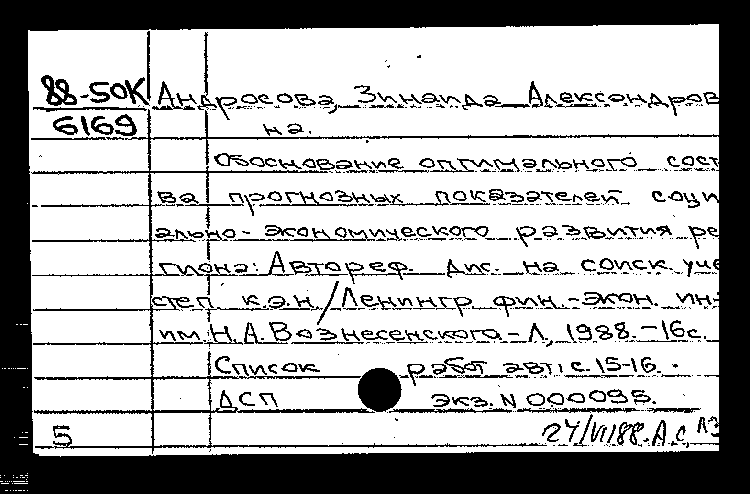 88-50К Андросова, Зинаида Александров
6169 на.
Обоснование оптимального сост
ва прогнозных показателей соци
ально-экономического развития ре
гиона: Автореф. дис. на соиск уче
степ к.э.н./Ленингр фин.-экон. ин-
им. Н.А. Вознесенского - Л, 1988. - 16с.
Список работ авт.: с. 15-16.
ДСП экз. N 000095.
5 24/VI88. А.С.